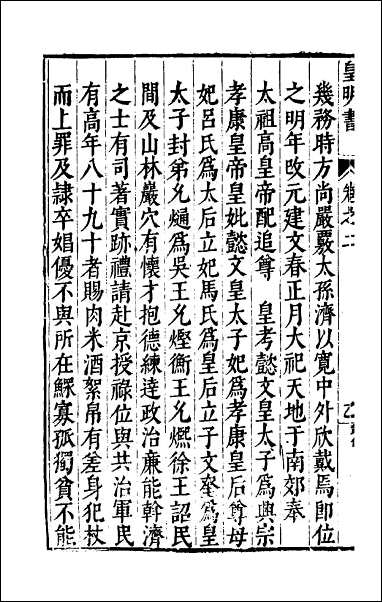 皇明書
卷之二
幾務時方尚嚴覈太孫濟以寬中外欣戴焉即位
之明年改元建文春正月大祀天地于南郊奉
太祖高皇帝配追尊　皇考懿文皇太子爲興宗
孝康皇帝皇妣懿文皇太子妃爲孝康皇后尊母
妃呂氏爲太后立妃馬氏爲皇后立子文奎爲皇
太子封弟允熥爲吳王允熞衡王允㷩徐王詔民
間及山林巖穴有懷才抱德練達政治廉能幹濟
之士有司著實跡禮請赴京授祿位與共治軍民
有高年八十九十者賜肉米酒絮帛有差身犯杖
而上罪及隷卒娼優不與所在鰥寡孤獨貧不能